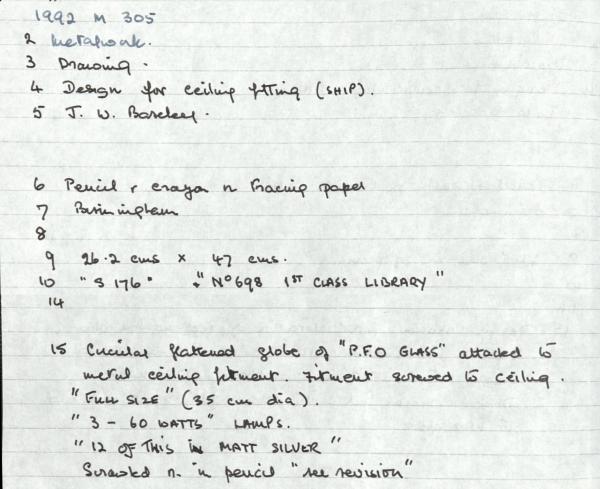 1992 M 305
2 Metalwork.
3 Drawing.
4 Design for ceiling fitting (SHIP).
5 J. W. Barclay.
6 Pencil & crayon on tracing paper
7 Birmingham
8
9 26.2 cms × 47 cms.
10 "S 176" & "No 698 1ST CLASS LIBRARY"
14
15 Circular flattened globe of "P.F.O GLASS" attached to
metal ceiling fitment. Fitment screwed to ceiling.
"FULL SIZE" (35 cm dia).
"3 - 60 WATTS" LAMPS.
"12 OF THIS IN MATT SILVER"
in pencil "see revision"